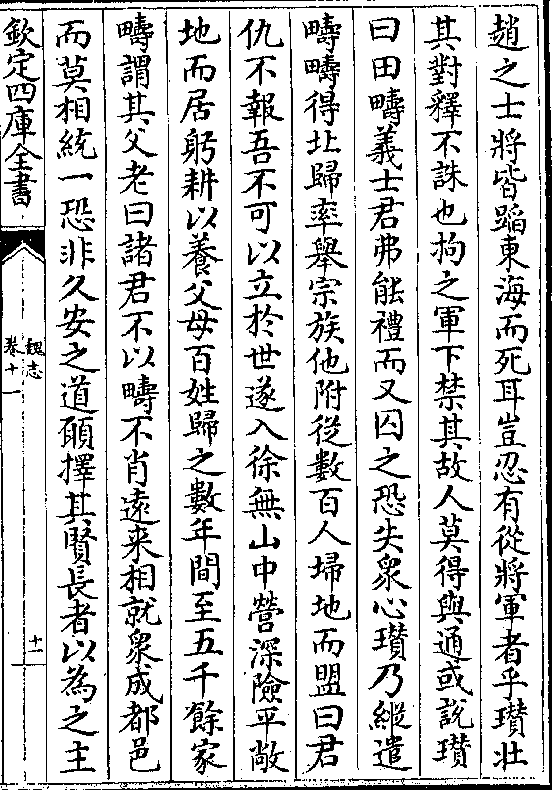 趙之士將皆蹈東海而死耳豈忍有從將軍者乎瓚壯
其對釋不誅也拘之軍下禁其故人莫得與通或說瓚
曰田疇義士君弗能禮而又囚之恐失衆心瓚乃縱遣
疇疇得北歸率舉宗族他附從數百人埽地而盟曰君
仇不報吾不可以立於世遂入徐無山中營深險平敞
地而居躬耕以養父母百姓歸之數年間至五千餘家
疇謂其父老曰諸君不以疇不肖遠来相就衆成都邑
而莫相統一恐非久安之道願擇其賢長者以為之主
欽定四庫全書
魏志
卷十一
十一